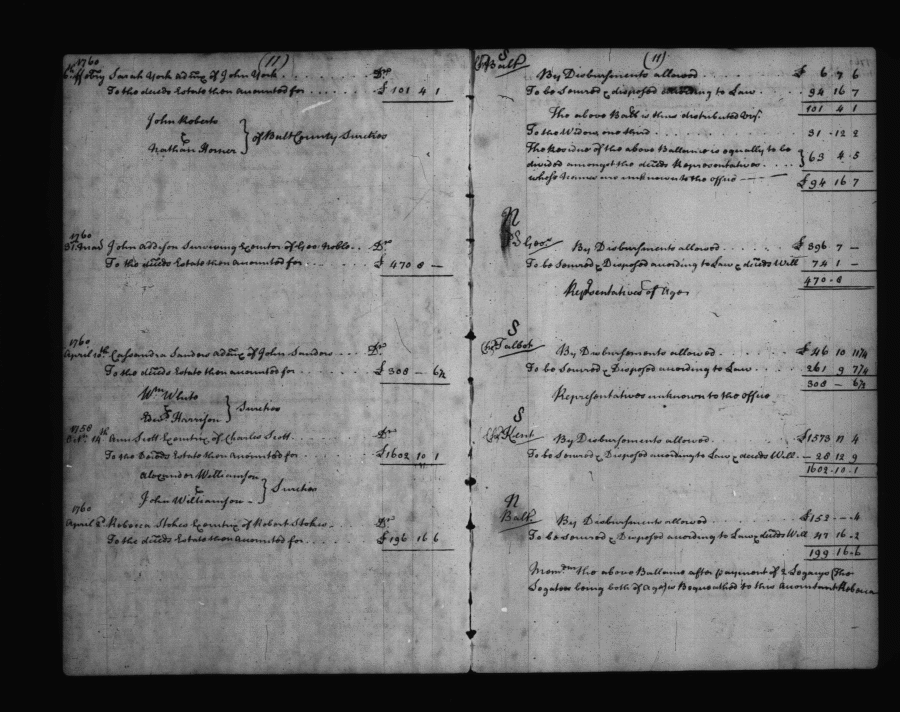 (11)
1760
Sarah York admx of John York . . . . . . . Dr
To the deceds Estate then amounted for . . . . . £ 101 4 1
John Roberts
&
Nathan Horner
} of Balt County Sureties
1760
John Addison Surviving Executor of Geo: Noble . . Dr
To the deceds Estate then amounted for . . . . . £ 470 8 —
1760
April 10th Cassandra Sanders admx of John Sanders . . . Dr
To the deceds Estate then amounted for . . . . . £ 308 — 6½
Wm White
& Harrison
} Sureties
1758
14th Ann Scott Executrix of Charles Scott . . . . . Dr
To the Deceds Estate then amounted for . . . . . £1602 10 1
Alexander Williamson
&
John Williamson
} Sureties
1760
April 2d Rebecca Stokes Executrix of Robert Stokes . . Dr
To the deceds Estate then amounted for . . . . . £ 196 16 6
(11)
S
Balt
By Disbursements allowed . . . . . £ 6 7 6
To be Secured & disposed according to Law . . 94 16 7
101 4 1
The above Balle is thus distributed Vizt
To the Widow one third . . . . . 31 - 12 2
The Residue of the above Ballance is equally to be
divided amongst the deceds Representatives . . . . } 63 4 5
whose names are unknown to the office —
£ 94 16 7
N
S
Geos By Disbursements allowed . . . . . £ 396 7 —
To be Secured & Disposed according to Law & deceds Will 74 1 —
470 - 8
Representatives of Age
S
Talbot By Disbursements allowed . . . . . £ 46 10 11¼
To be Secured & Disposed according to Law . . . 261 9 7¼
308 — 6½
Representatives unknown to the office
S
Kent By Disbursements allowed . . . . . £1573 17 4
To be Secured & Disposed according to Law & deceds Will — 28 12 9
1602 - 10 - 1
N
Balt. By Disbursements allowed . . . . . £152 - - 4
To be Secured & Disposed according to Law & deceds Will 47 16 - 2
199 16 - 6
Memdm the above Ballance after payment of 2 Legacys (The
Legatees being both of age) is Bequeathed to this accountant Rebecca